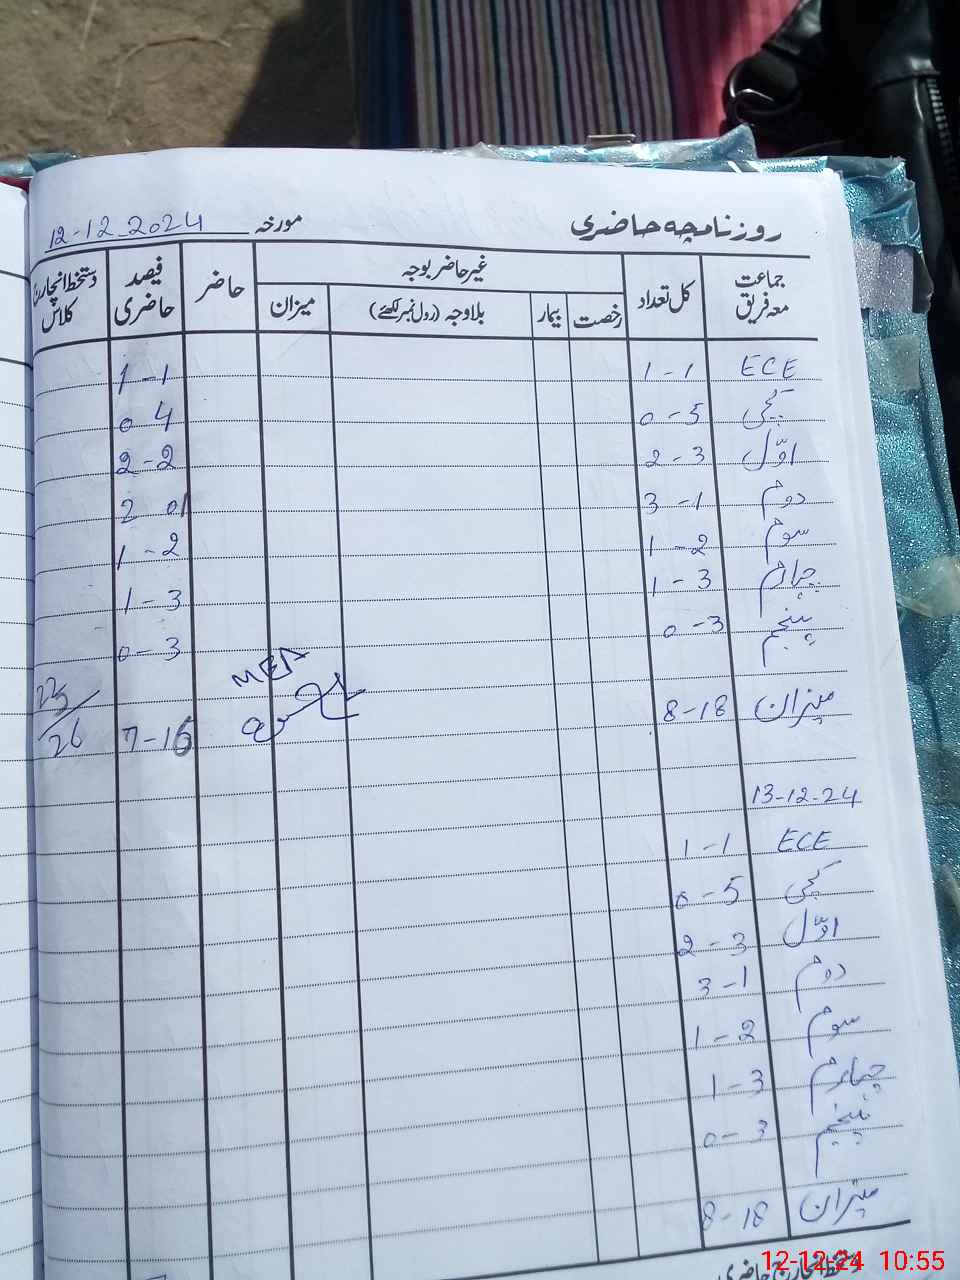 روزنامچہ حاضری مورخہ 12-12-2024
جماعت معہ فریق کل تعداد غیر حاضر بوجہ حاضر فیصد حاضری دستخط انچارج کلاس
رخصت بیمار بلاوجہ (رول نمبر لکھئے) میزان
ECE 1-1 1-1
کچی 0-5 0 4
اوّل 2-3 2-2
دوم 3-1 2 01
سوم 1-2 1-2
چہارم 1-3 1-3
پنجم 0-3 0-3
MEA
میزان 8-18 7-15 22/26
13-12-24
ECE 1-1
کچی 0-5
اوّل 2-3
دوم 3-1
سوم 1-2
چہارم 1-3
پنجم 0-3
میزان 8-18
دستخط انچارج حاضری
12-12-24 10:55